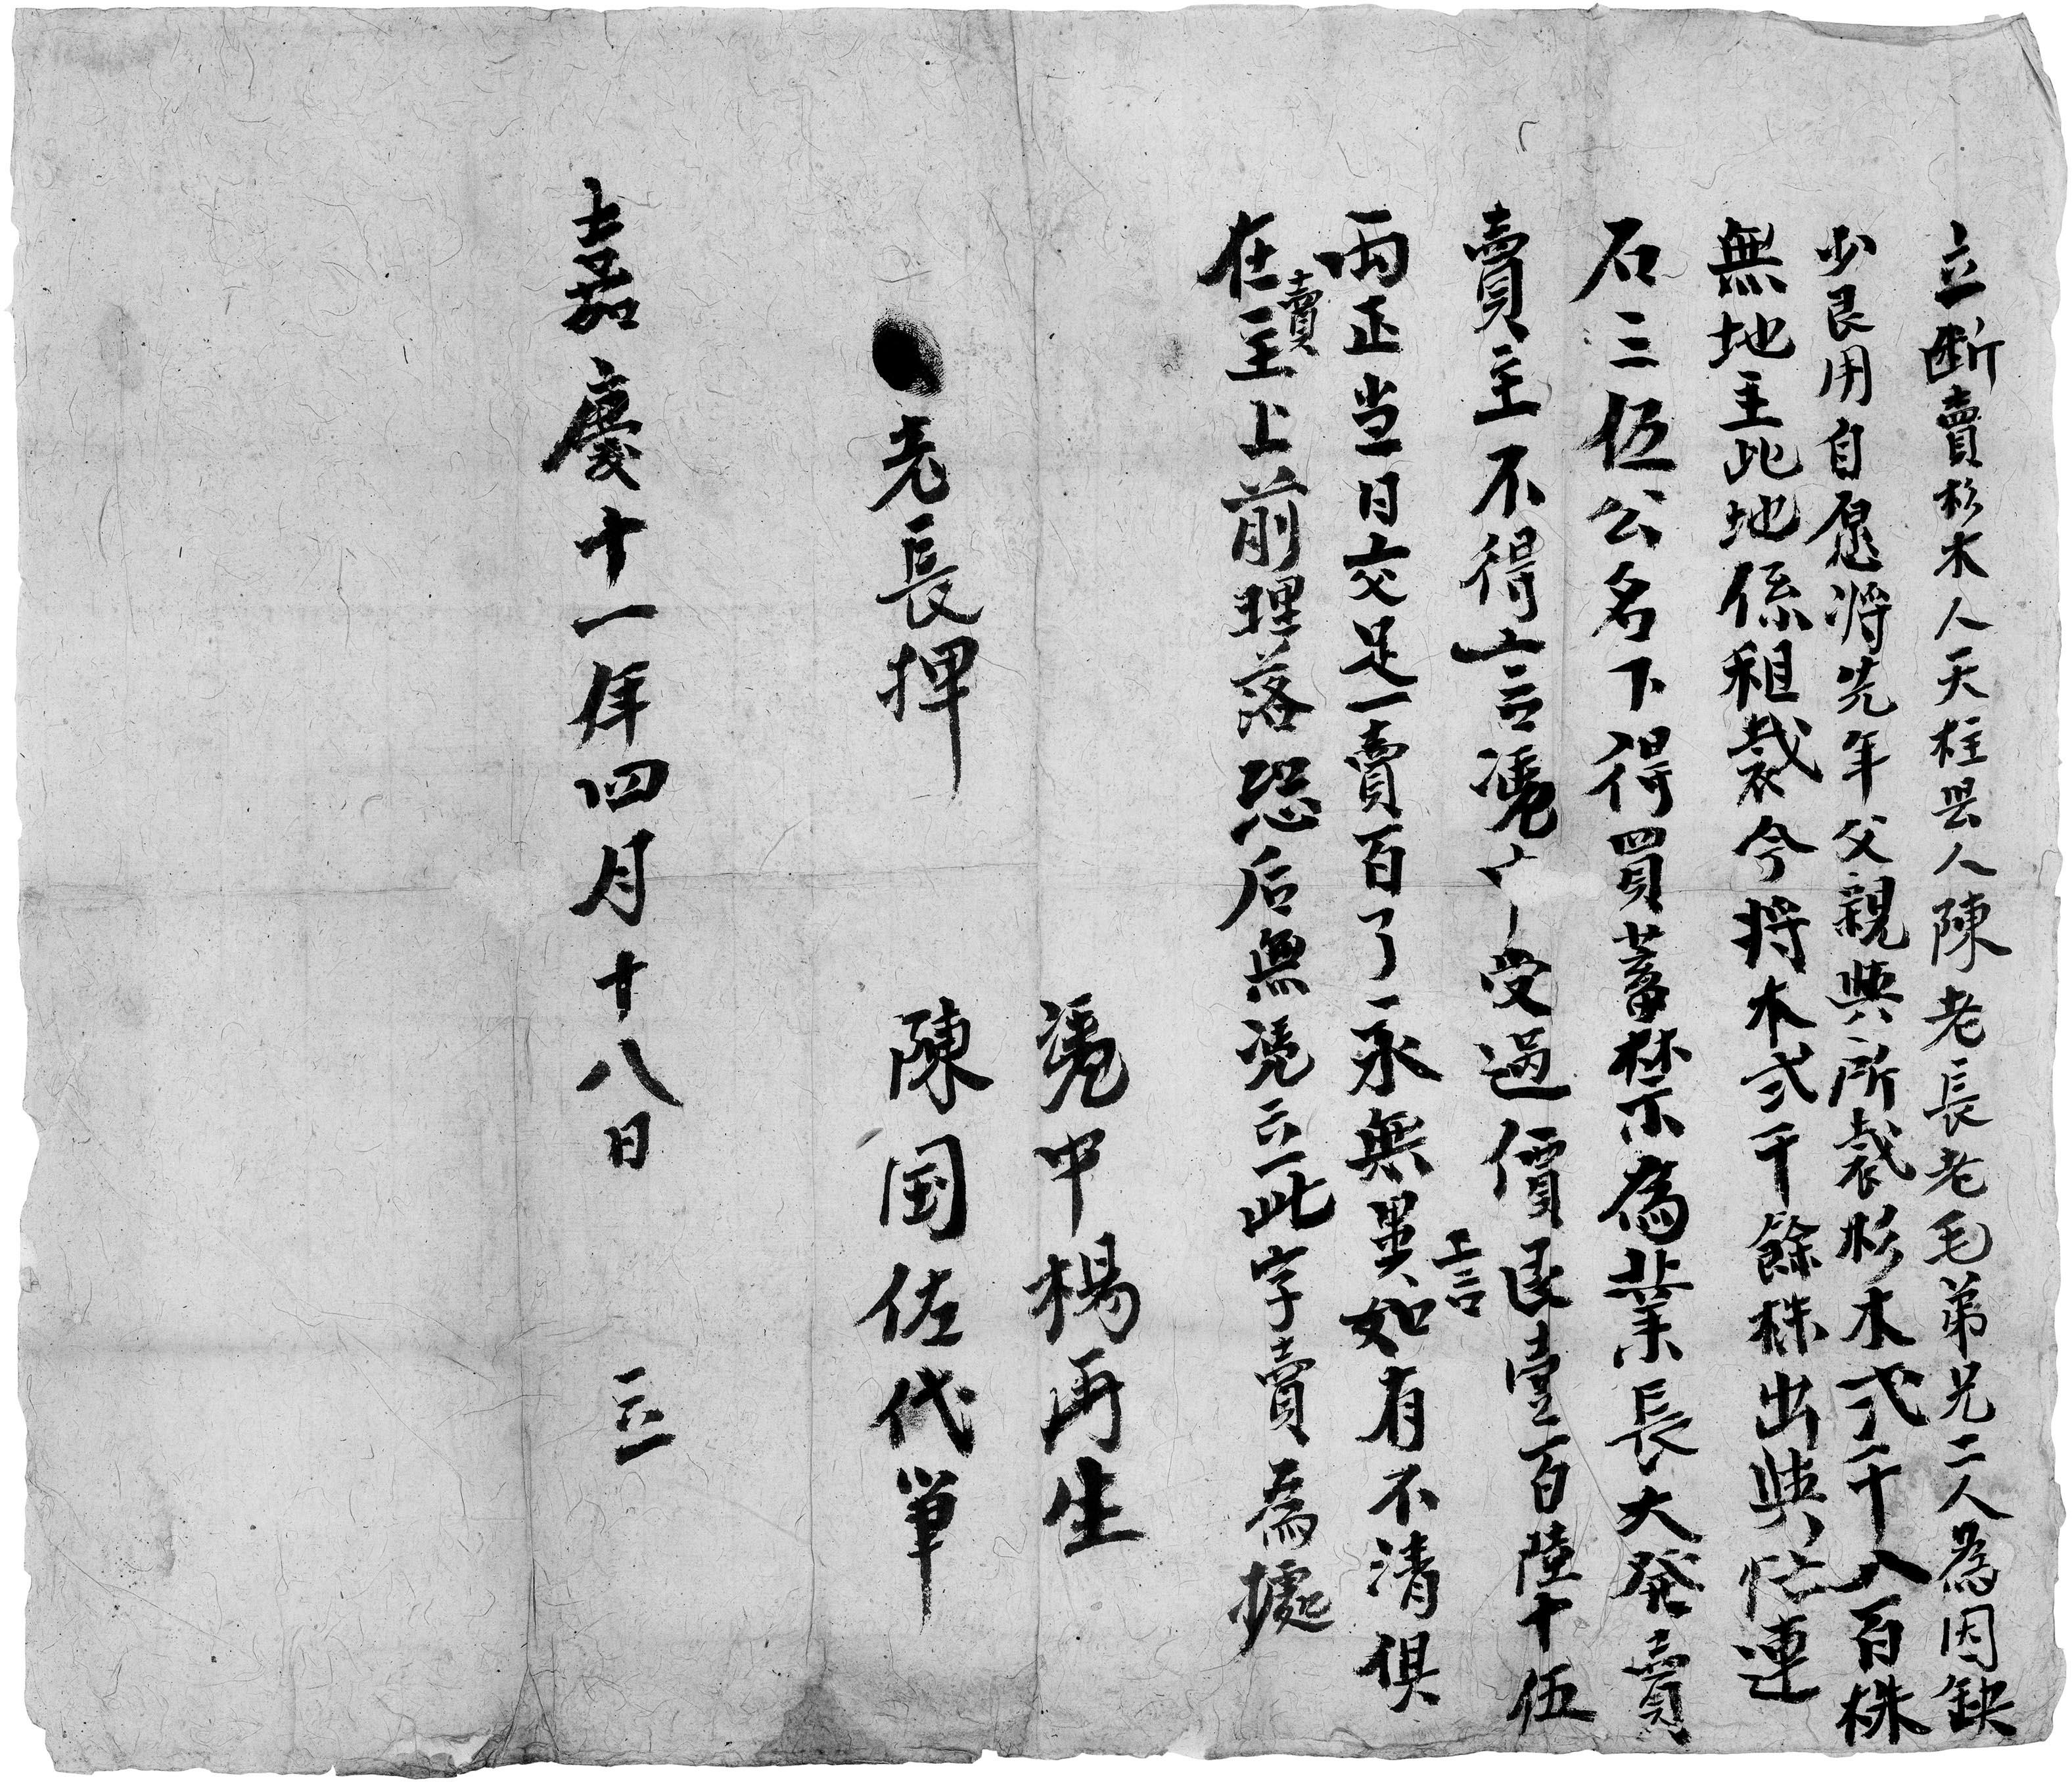 立断賣杉木人天柱县人陳老長老毛弟兄二人為因缺
少艮用自愿將先年父親與所栽杉木弍千八百株
無地主此地係租栽今將木弍千餘株出與忙連
石三伍公名下得買蓄禁為業長大發賣
賣主不得言憑中受過價艮壹百陸十伍
言
兩正当日交足一賣百了永無異如有不清俱
在賣主上前理落恐后無凭立此字賣為據
憑中楊再生
老長押
陳国佐代筆
嘉慶十一年四月十八日 立